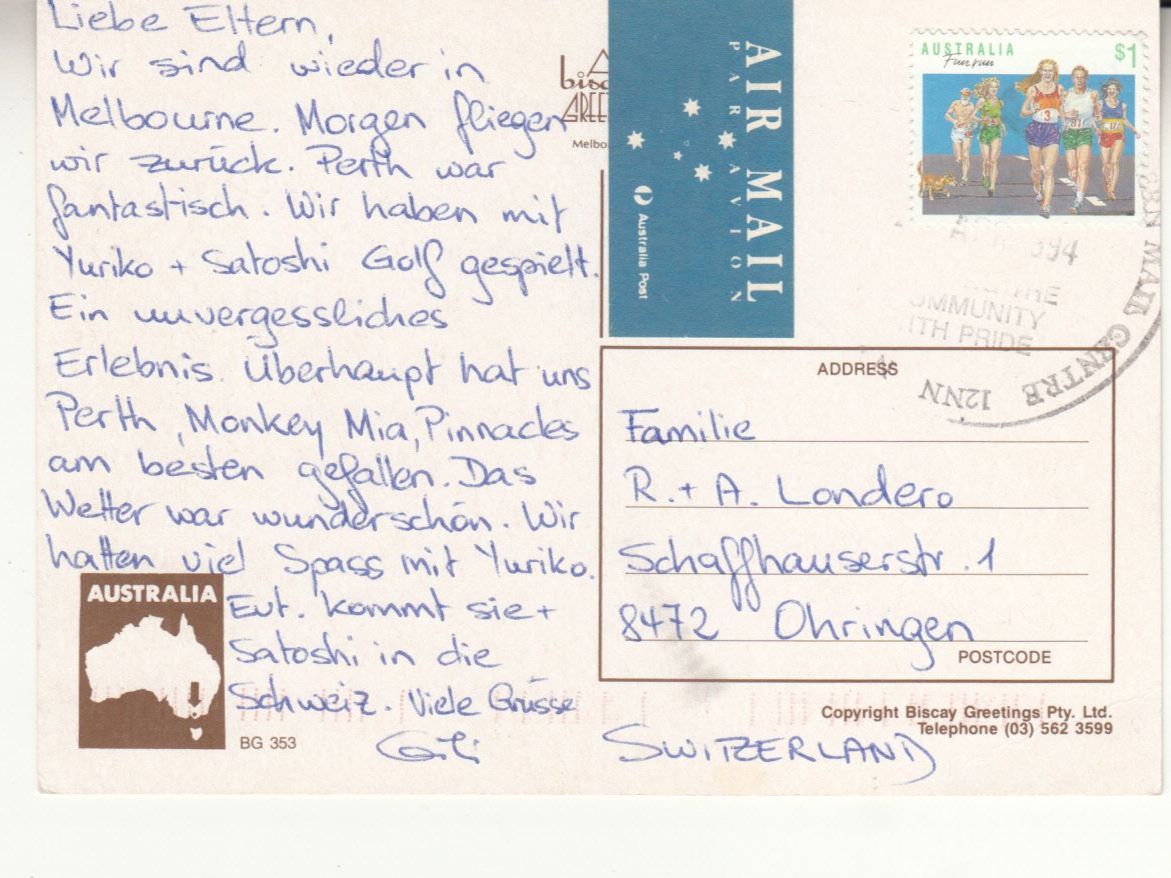 Liebe Eltern,
Wir sind wieder in
Melbourne. Morgen fliegen
wir zurück. Perth war
fantastisch. Wir haben mit
Yuriko + Satoshi Golf gespielt.
Ein unvergessliches
Erlebnis. Überhaupt hat uns
Perth, Monkey Mia, Pinnacles
am besten gefallen. Das
Wetter war wunderschön. Wir
hatten viel Spass mit Yuriko.
Evt. kommt sie +
Satoshi in die
Schweiz. Viele Grüsse
AUSTRALIA
BG 353
AIR MAIL
PAR AVION
Australia Post
AUSTRALIA $1
Fun run
3
MAIL CENTRE
WITH PRIDE
ADDRESS
Familie
R. + A. Londero
Schaffhauserstr. 1
8472 Ohringen
POSTCODE
Copyright Biscay Greetings Pty. Ltd.
Telephone (03) 562 3599
SWITZERLAND